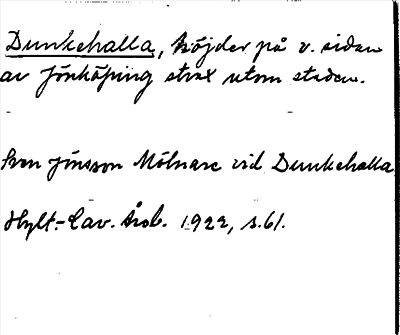 Dunkehalla, höjder på v. sidan
av Jönköping strax utom staden.
Sven Jönsson Mölnare vid Dunkehalla.
Hylt.-Cav. Årsb. 1922, s. 61.